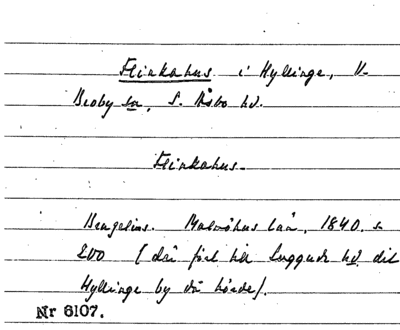 Flinkahus i Hyllinge, V.
Broby sn, S. Åsbo hd.
Flinkahus.
Bengelins. Malmöhus län, 1840. s.
200 (där fört till Luggude hd. dit
Hyllinge by då hörde).
Nr 6107.